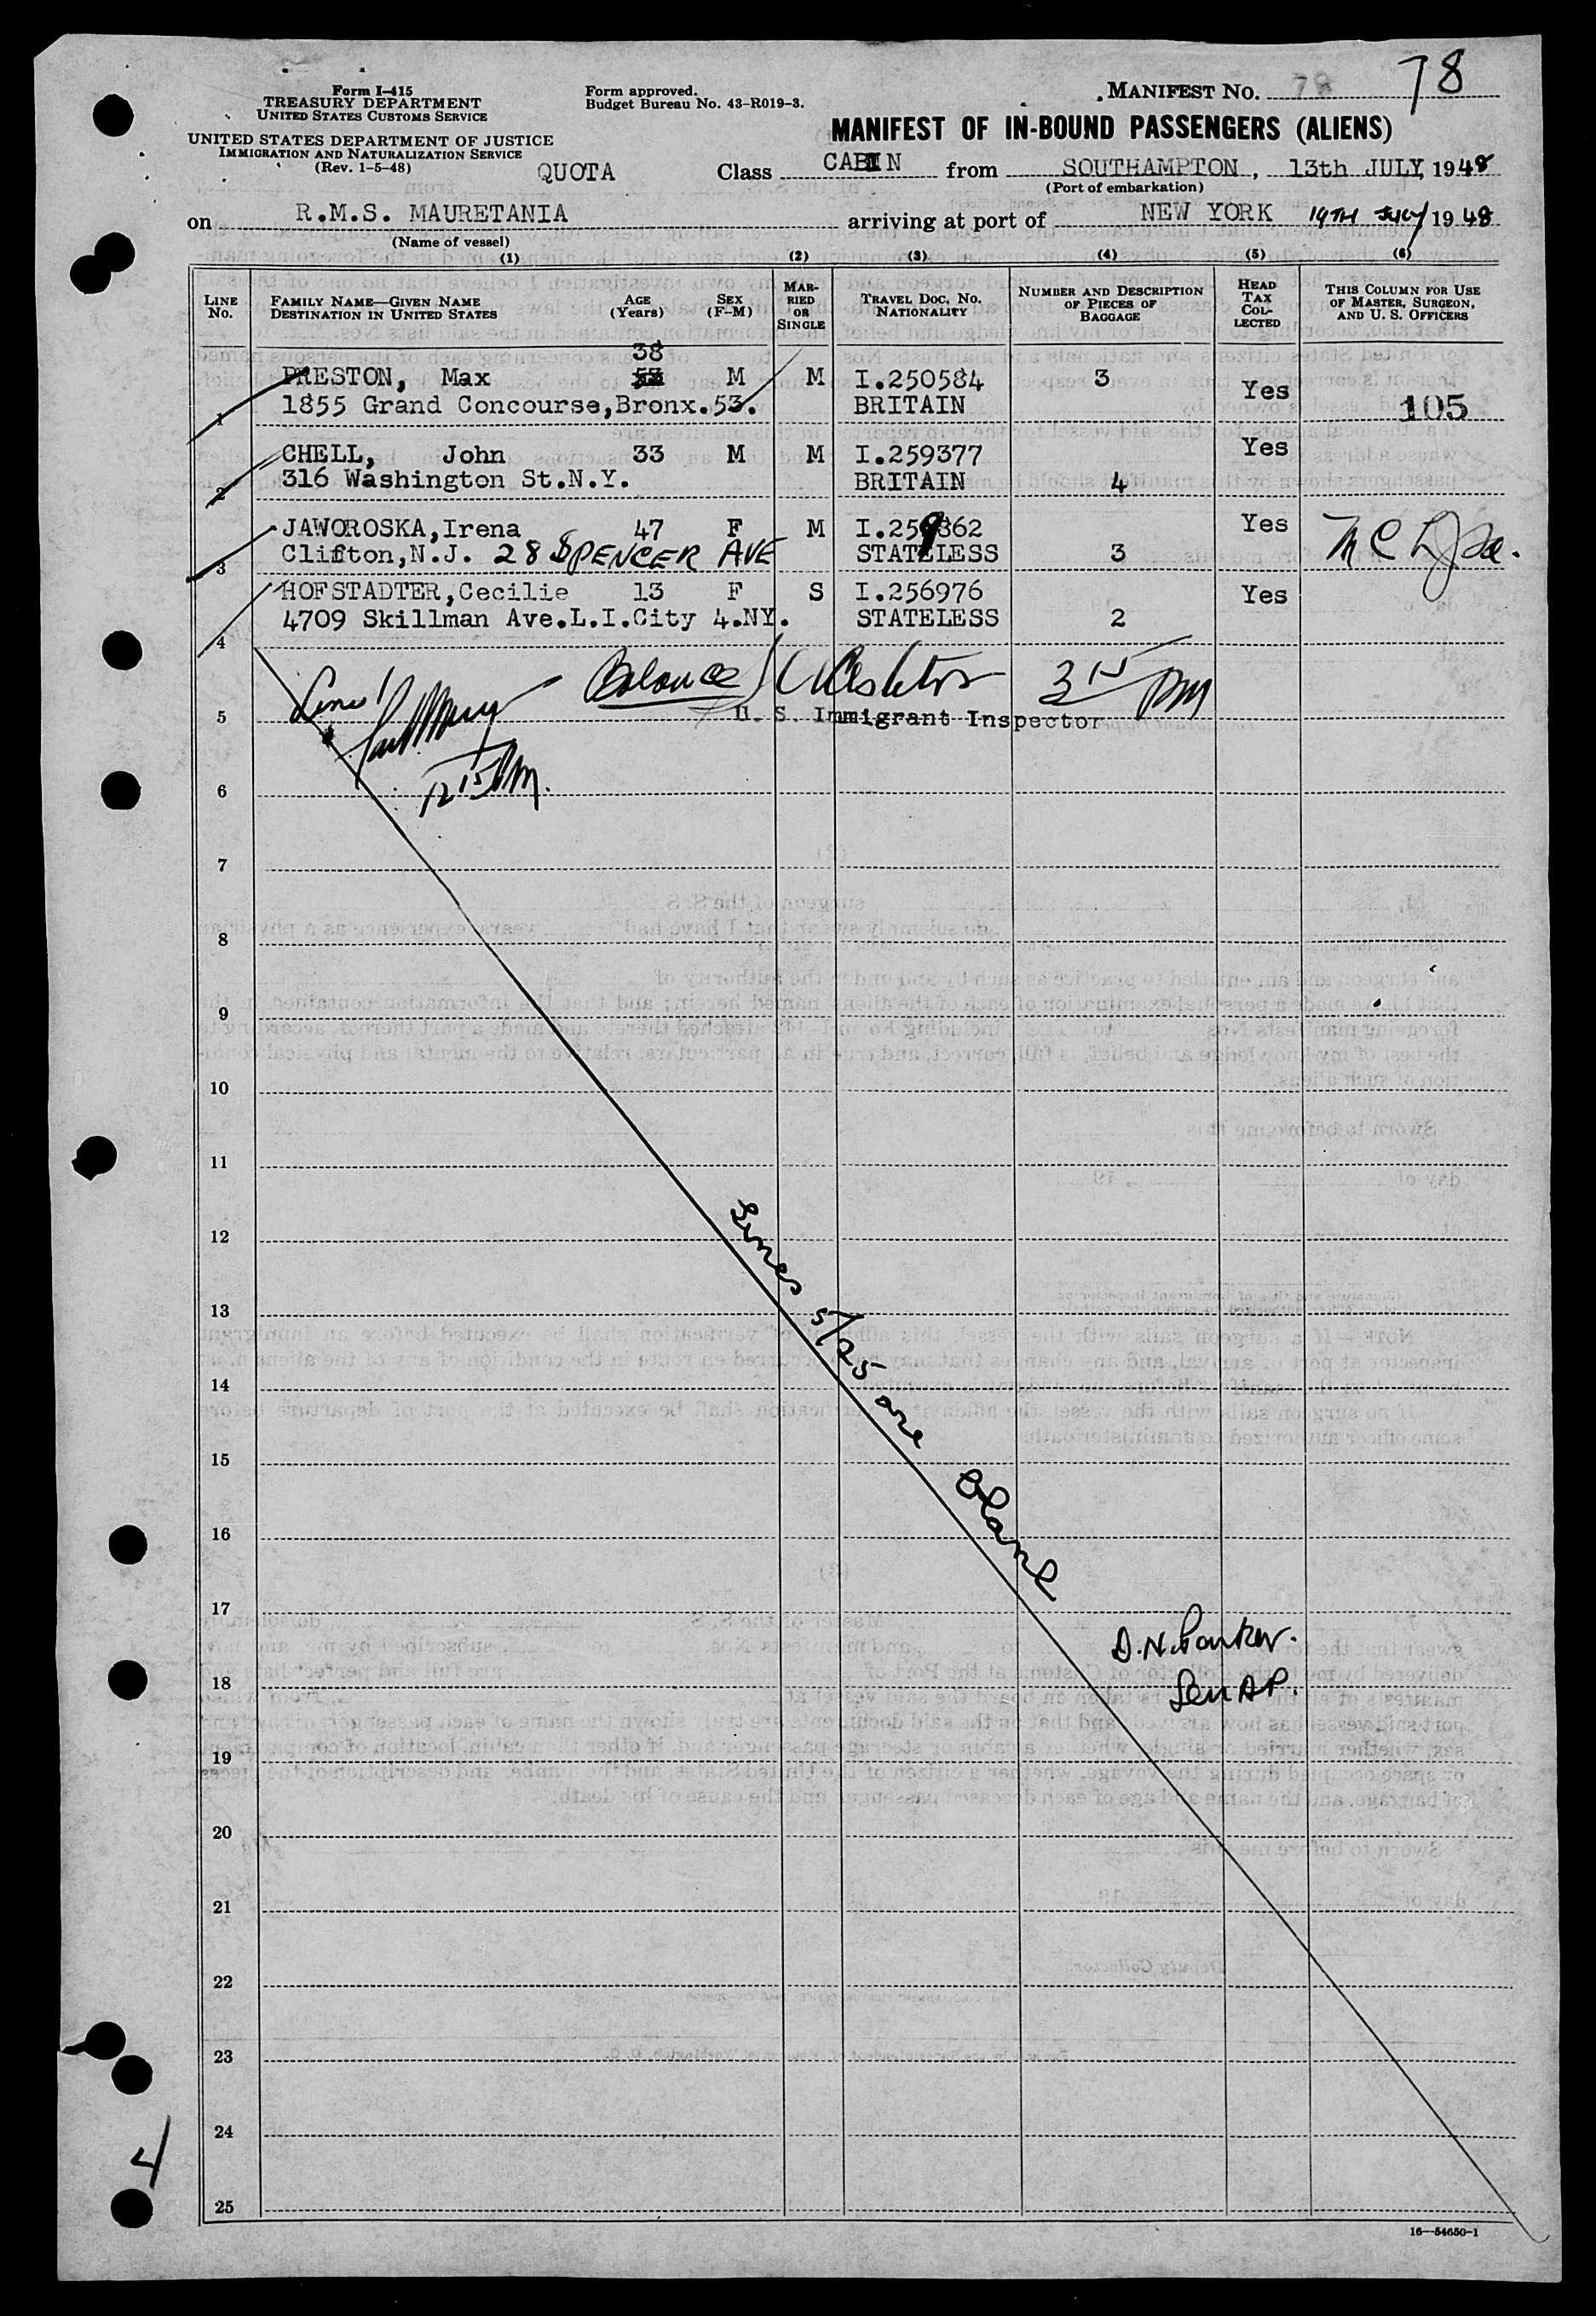 Form I-415
TREASURY DEPARTMENT
UNITED STATES CUSTOMS SERVICE
UNITED STATES DEPARTMENT OF JUSTICE
IMMIGRATION AND NATURALIZATION SERVICE
(Rev. 1-5-48)
Form approved.
Budget Bureau No. 43-R019-3.
MANIFEST NO. 78 78
MANIFEST OF IN-BOUND PASSENGERS (ALIENS)
QUOTA Class CABIN from SOUTHAMPTON, 13th JULY, 1948
(Port of embarkation)
on R.M.S. MAURETANIA arriving at port of NEW YORK 19TH JULY 1948
(Name of vessel)
(1) (2) (3) (4) (5) (6)
LINE No. FAMILY NAME—GIVEN NAME DESTINATION IN UNITED STATES AGE (Years) SEX (F-M) MARRIED OR SINGLE TRAVEL DOC. NO. NATIONALITY NUMBER AND DESCRIPTION OF PIECES OF BAGGAGE HEAD TAX COLLECTED THIS COLUMN FOR USE OF MASTER, SURGEON, AND U. S. OFFICERS
38
PRESTON, Max M M I.250584 3 Yes
1 1855 Grand Concourse,Bronx.53. BRITAIN 105
CHELL, John 33 M M I.259377 Yes
2 316 Washington St.N.Y. BRITAIN 4
JAWOROSKA,Irena 47 F M I.259862 Yes
3 Clifton,N.J. 28 SPENCER AVE STATELESS 3
HOFSTADTER,Cecilie 13 F S I.256976 Yes
4 4709 Skillman Ave.L.I.City 4.NY. STATELESS 2
Line 1 Balance 3 15 PM
5 U. S. Immigrant Inspector
12 15 PM.
6
7
8
9
10
11
12
13
14
15
16
17
18
19
20
21
22
23
24
25
Lines 5/25 are Blank
D.N. Parker.
4
16—54650-1